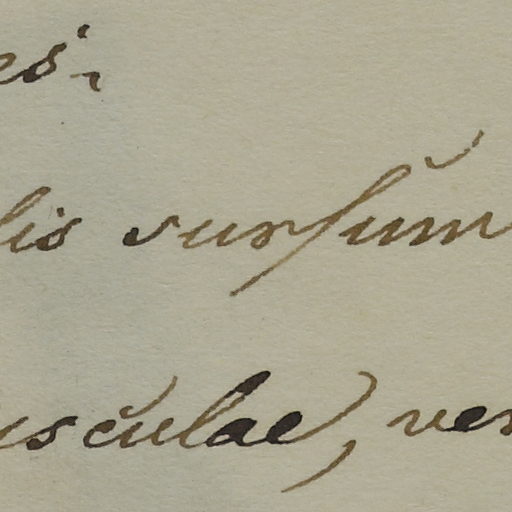 es.
lis surſum
usculae, ver